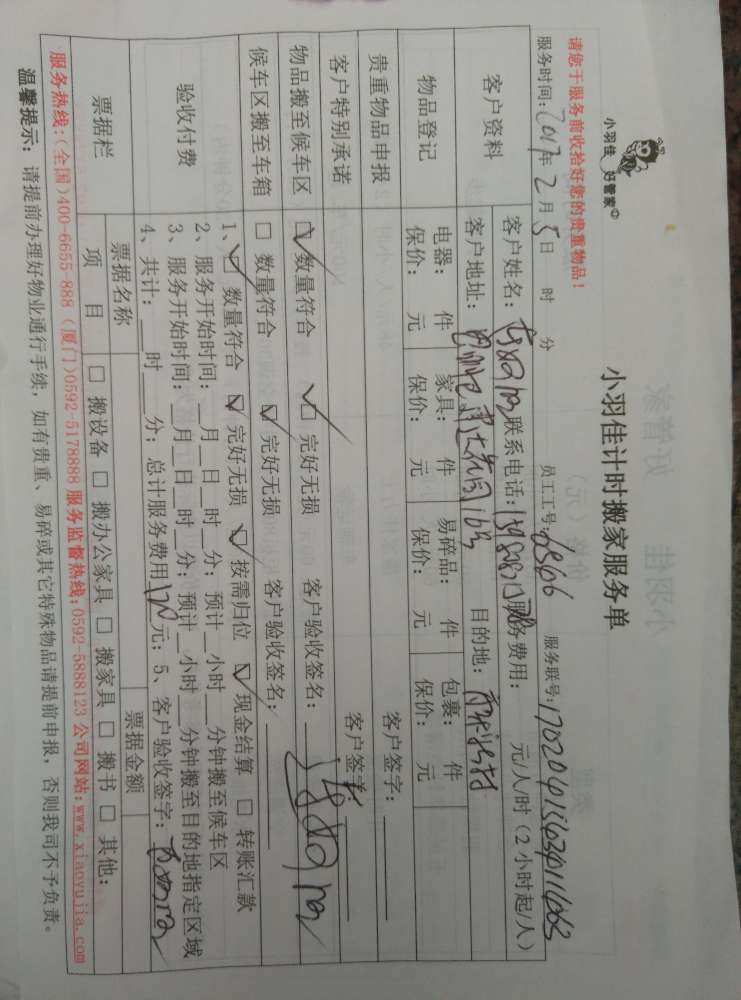 小羽佳 好管家
小羽佳计时搬家服务单
请您于服务前收拾好您的贵重物品！
服务时间：2017年 2月 5日 时 分 员工工号： 服务联号：
客户资料 客户姓名： 联系电话： 服务费用： 元/人/时（2小时起/人）
客户地址： 目的地：
物品登记 电器： 件 家具： 件 易碎品： 件 包裹： 件
保价： 元 保价： 元 保价： 元 保价： 元
贵重物品申报 客户签字：
客户特别承诺 客户签字：
物品搬至候车区 ☑ 数量符合 ☑ 完好无损 客户验收签名：
候车区搬至车箱 □ 数量符合 ☑ 完好无损 客户验收签名：
验收付费 1、☑ 数量符合 ☑ 完好无损 ☑ 按需归位 ☑ 现金结算 □ 转账汇款
2、服务开始时间：__月__日__时__分；预计__小时__分钟搬至候车区
3、服务开始时间：__月__日__时__分；预计__小时__分钟搬至目的地指定区域
4、共计：__时__分；总计服务费用 元；5、客户验收签字：
票据栏 票据名称 票据金额
项 目 □ 搬设备 □ 搬办公家具 □ 搬家具 □ 搬书 □ 其他：
服务热线：(全国)400-6655-888 (厦门)0592-5178888 服务监督热线：0592-5888123 公司网站：www.xiaoyujia.com
温馨提示：请提前办理好物业通行手续，如有贵重、易碎或其它特殊物品请提前申报，否则我司不予负责。